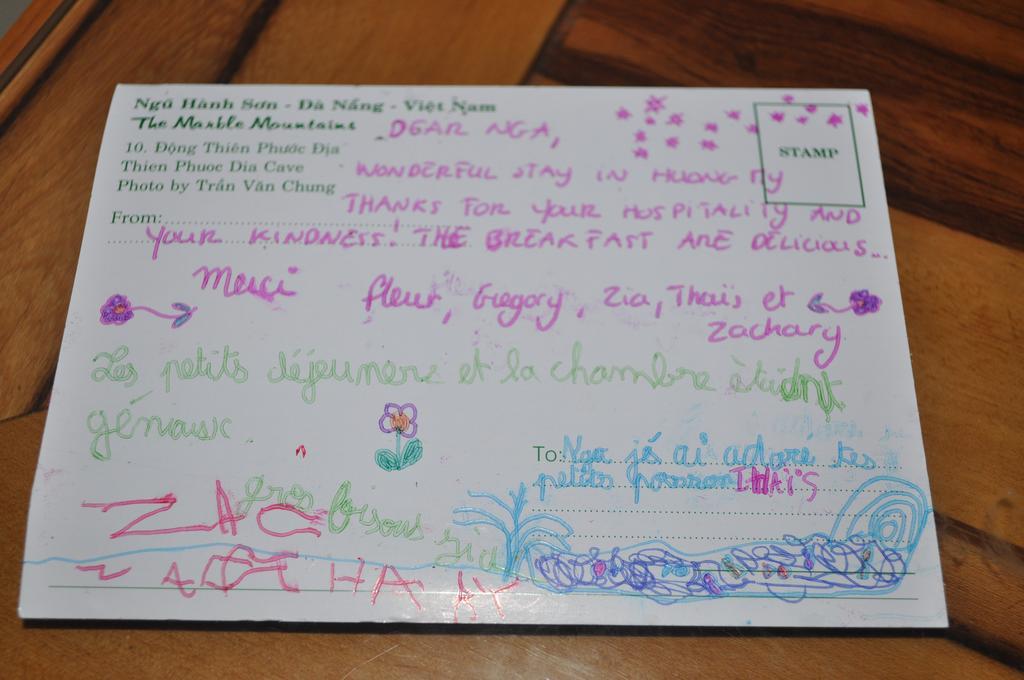 Ngũ Hành Sơn - Đà Nẵng - Việt Nam
The Marble Mountains
10. Động Thiên Phước Địa
Thien Phuoc Dia Cave
Photo by Trần Văn Chung
From:
STAMP
DEAR NGA,
WONDERFUL STAY IN HUONG MY
THANKS FOR YOUR HOSPITALITY AND
YOUR KINDNESS! THE BREAKFAST ARE DELICIOUS...
Merci fleur, Gregory, Zia, Thaïs et
Zachary
Les petits déjeunere et la chambre étaient
géniaux.
To: Nga jé ai adore tes
petits THAÏS
gros bisous Zia
ZAC
ZACHARY